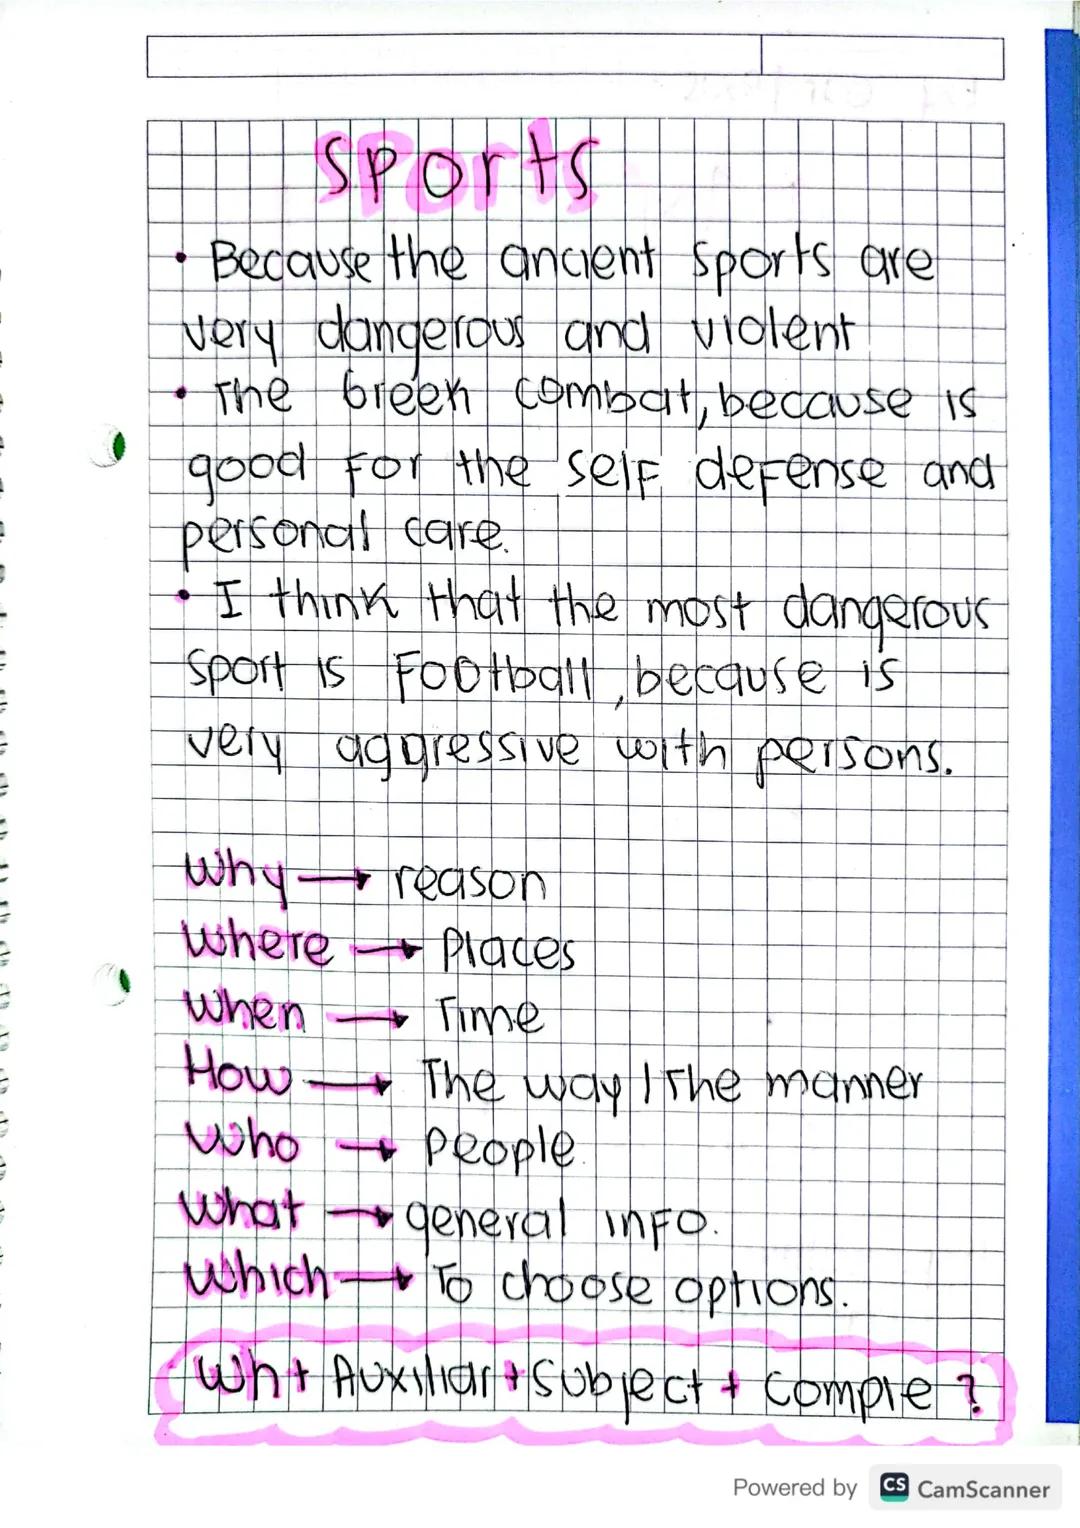 Sports
• Because the ancient sports are
very dangerous and violent
• The Greek combat, because is
good for the self defense and
personal care.
• I think that the most dangerous
sport is Football, because is
very aggressive with persons.
Why → reason
Where → Places
When → Time
How → The way / The manner
Who → people.
What → general info.
Which → To choose options.
Wh + Auxiliar + Subject + Comple ?
Powered by CS CamScanner